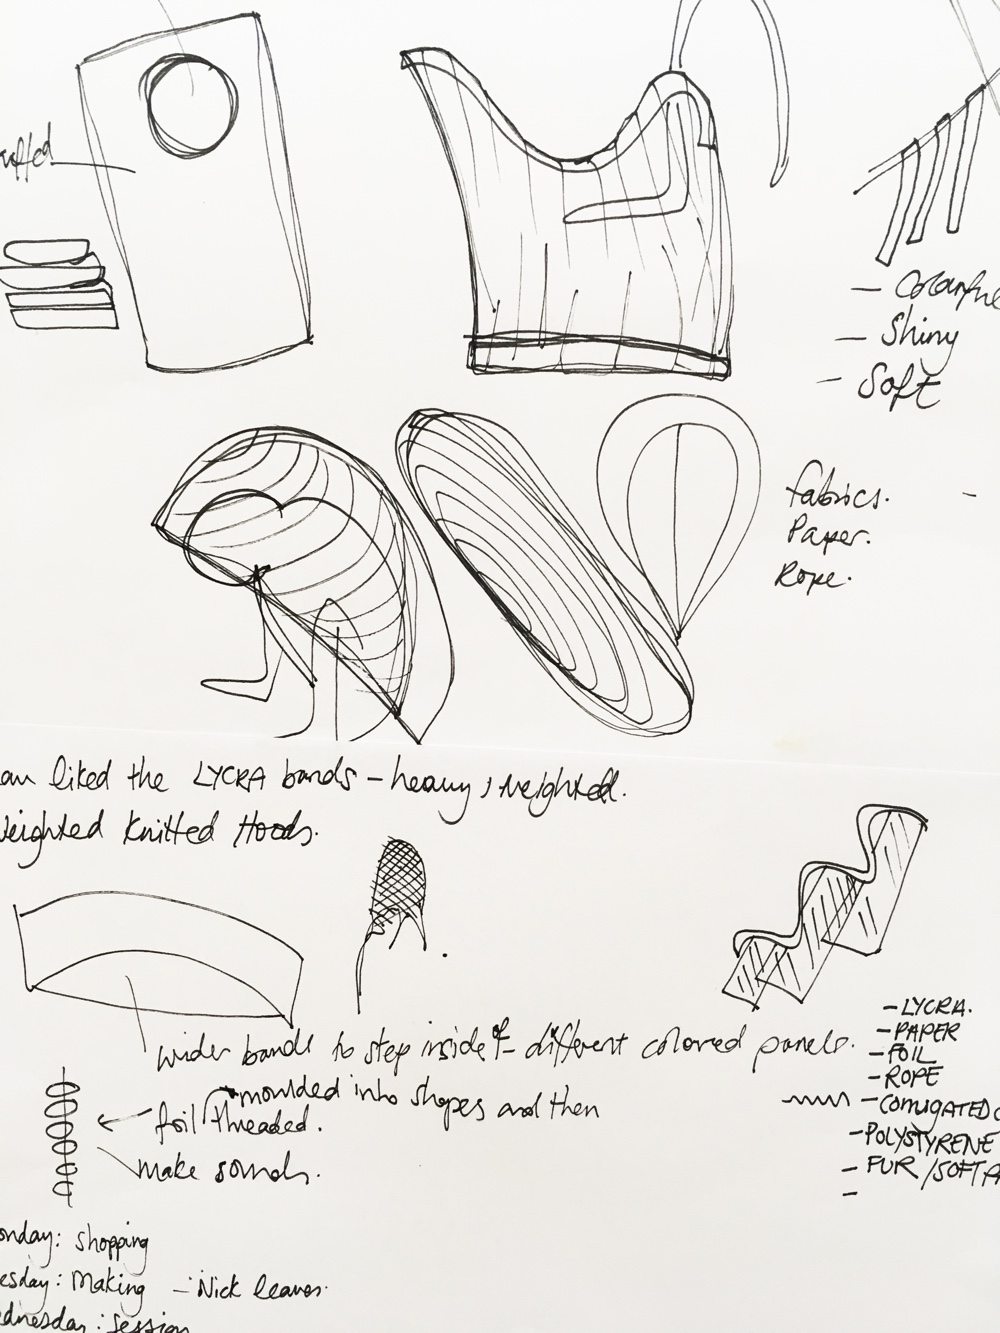 - Colourful
- Shiny
- Soft
fabrics.
Paper.
Rope.
liked the LYCRA bands - heavy, weighted.
Weighted Knitted Hoods.
wider bands to step inside of - different colored panels.
moulded into shapes and then
foil threaded.
make sounds.
- LYCRA.
- PAPER
- FOIL
- ROPE
- CORRUGATED C
- POLYSTYRENE
- FUR / SOFT
onday: shopping
esday: Making - Nick leaves.
ednesday: session